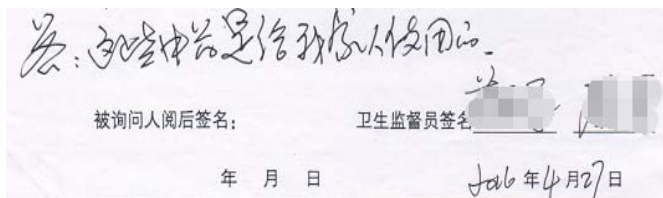 答：这些中药是给我家人使用的。
被询问人阅后签名： 卫生监督员签名
年 月 日 2016年4月27日